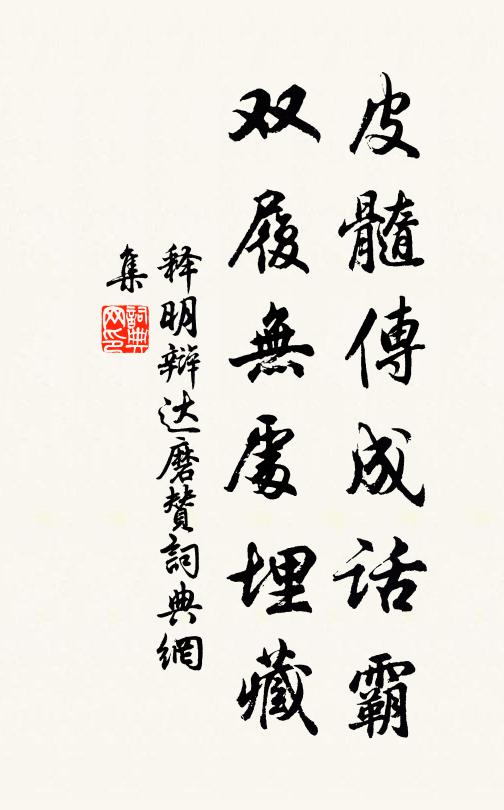 皮髓傳成话霸
双履無處埋藏
释明辩达磨赞詞典網
集
詞典网印